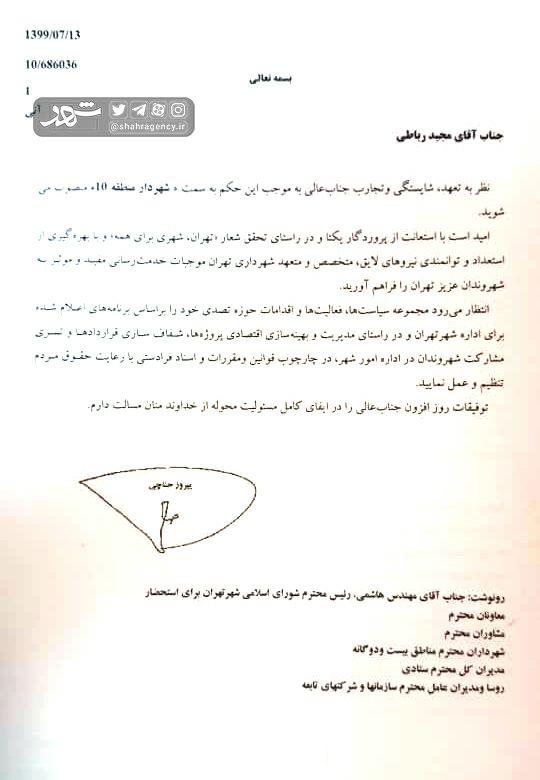 1399/07/13
10/686036
1
آنی
شهر
@shahragency.ir
بسمه تعالی
جناب آقای مجید رباطی
نظر به تعهد، شایستگی وتجارب جناب‌عالی به موجب این حکم به سمت « شهردار منطقه 10» منصوب می
شوید.
امید است با استعانت از پروردگار یکتا و در راستای تحقق شعار «تهران، شهری برای همه» و با بهره‌گیری از
استعداد و توانمندی نیروهای لایق، متخصص و متعهد شهرداری تهران موجبات خدمت‌رسانی مفید و موثر به
شهروندان عزیز تهران را فراهم آورید.
انتظار می‌رود مجموعه سیاست‌ها، فعالیت‌ها و اقدامات حوزه تصدی خود را براساس برنامه‌های اعلام شده
برای اداره شهرتهران و در راستای مدیریت و بهینه‌سازی اقتصادی پروژه‌ها، شفاف سازی قراردادها و تسری
مشارکت شهروندان در اداره امور شهر، در چارچوب قوانین ومقررات و اسناد فرادستی با رعایت حقوق مردم
تنظیم و عمل نمایید.
توفیقات روز افزون جناب‌عالی را در ایفای کامل مسئولیت محوله از خداوند منان مسالت دارم.
پیروز حناچی
رونوشت: جناب آقای مهندس هاشمی، رئیس محترم شورای اسلامی شهرتهران برای استحضار
معاونان محترم
مشاوران محترم
شهرداران محترم مناطق بیست ودوگانه
مدیران کل محترم ستادی
روسا ومدیران عامل محترم سازمانها و شرکتهای تابعه